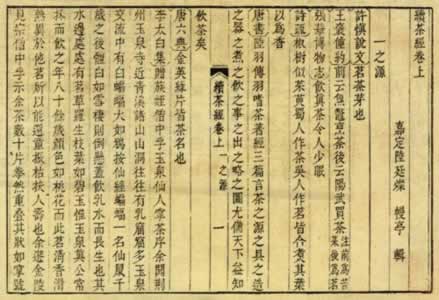 續茶經卷上
嘉定陸廷燦 幔亭 輯
一之源
許慎說文茗荼芽也
王褒僮約前云炰鼈烹茶後云陽武買茶 注前為苦菜後為茗
張華博物志飲真茶令人少眠
詩疏椒樹似茱萸蜀人作茶吳人作茗皆合煑其葉
以為香
唐書陸羽傳羽嗜茶著經三篇言茶之源之具之造
之器之煮之飲之事之出之略之圖尤備天下益知
續茶經卷上 一之源 一
飲茶矣
唐六典金英綠片皆茶名也
李太白集贈族姪僧中孚玉泉仙人掌茶序余聞荆
州玉泉寺近青溪諸山山洞往往有乳窟窟多玉泉
交流中有白蝙蝠大如鴉按仙經蝙蝠一名仙鼠千
歲之後體白如雪棲則倒懸蓋飲乳水而長生也其
水邊處處有茗草羅生枝葉如碧玉惟玉泉真公常
采而飲之年八十餘歲顏色如桃花而此茗清香滑
熟異於他茗所以能還童振枯扶人壽也余遊金陵
見宗僧中孚示余茶數十片拳然重疊其狀如掌號